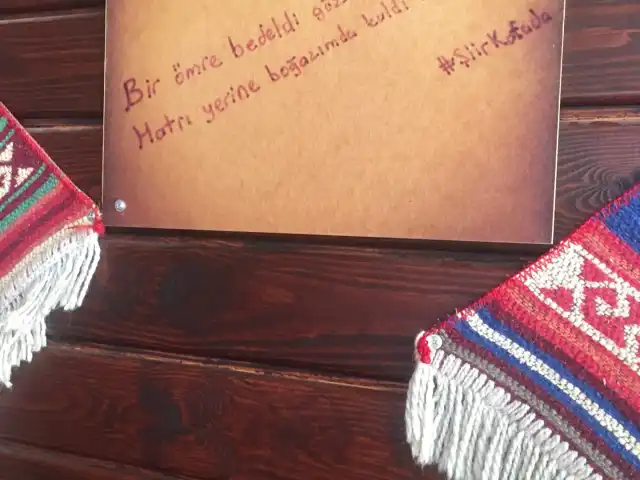 Bir ömre bedeldi
Hatrı yerine boğazımda kaldı
#ŞiirKafada